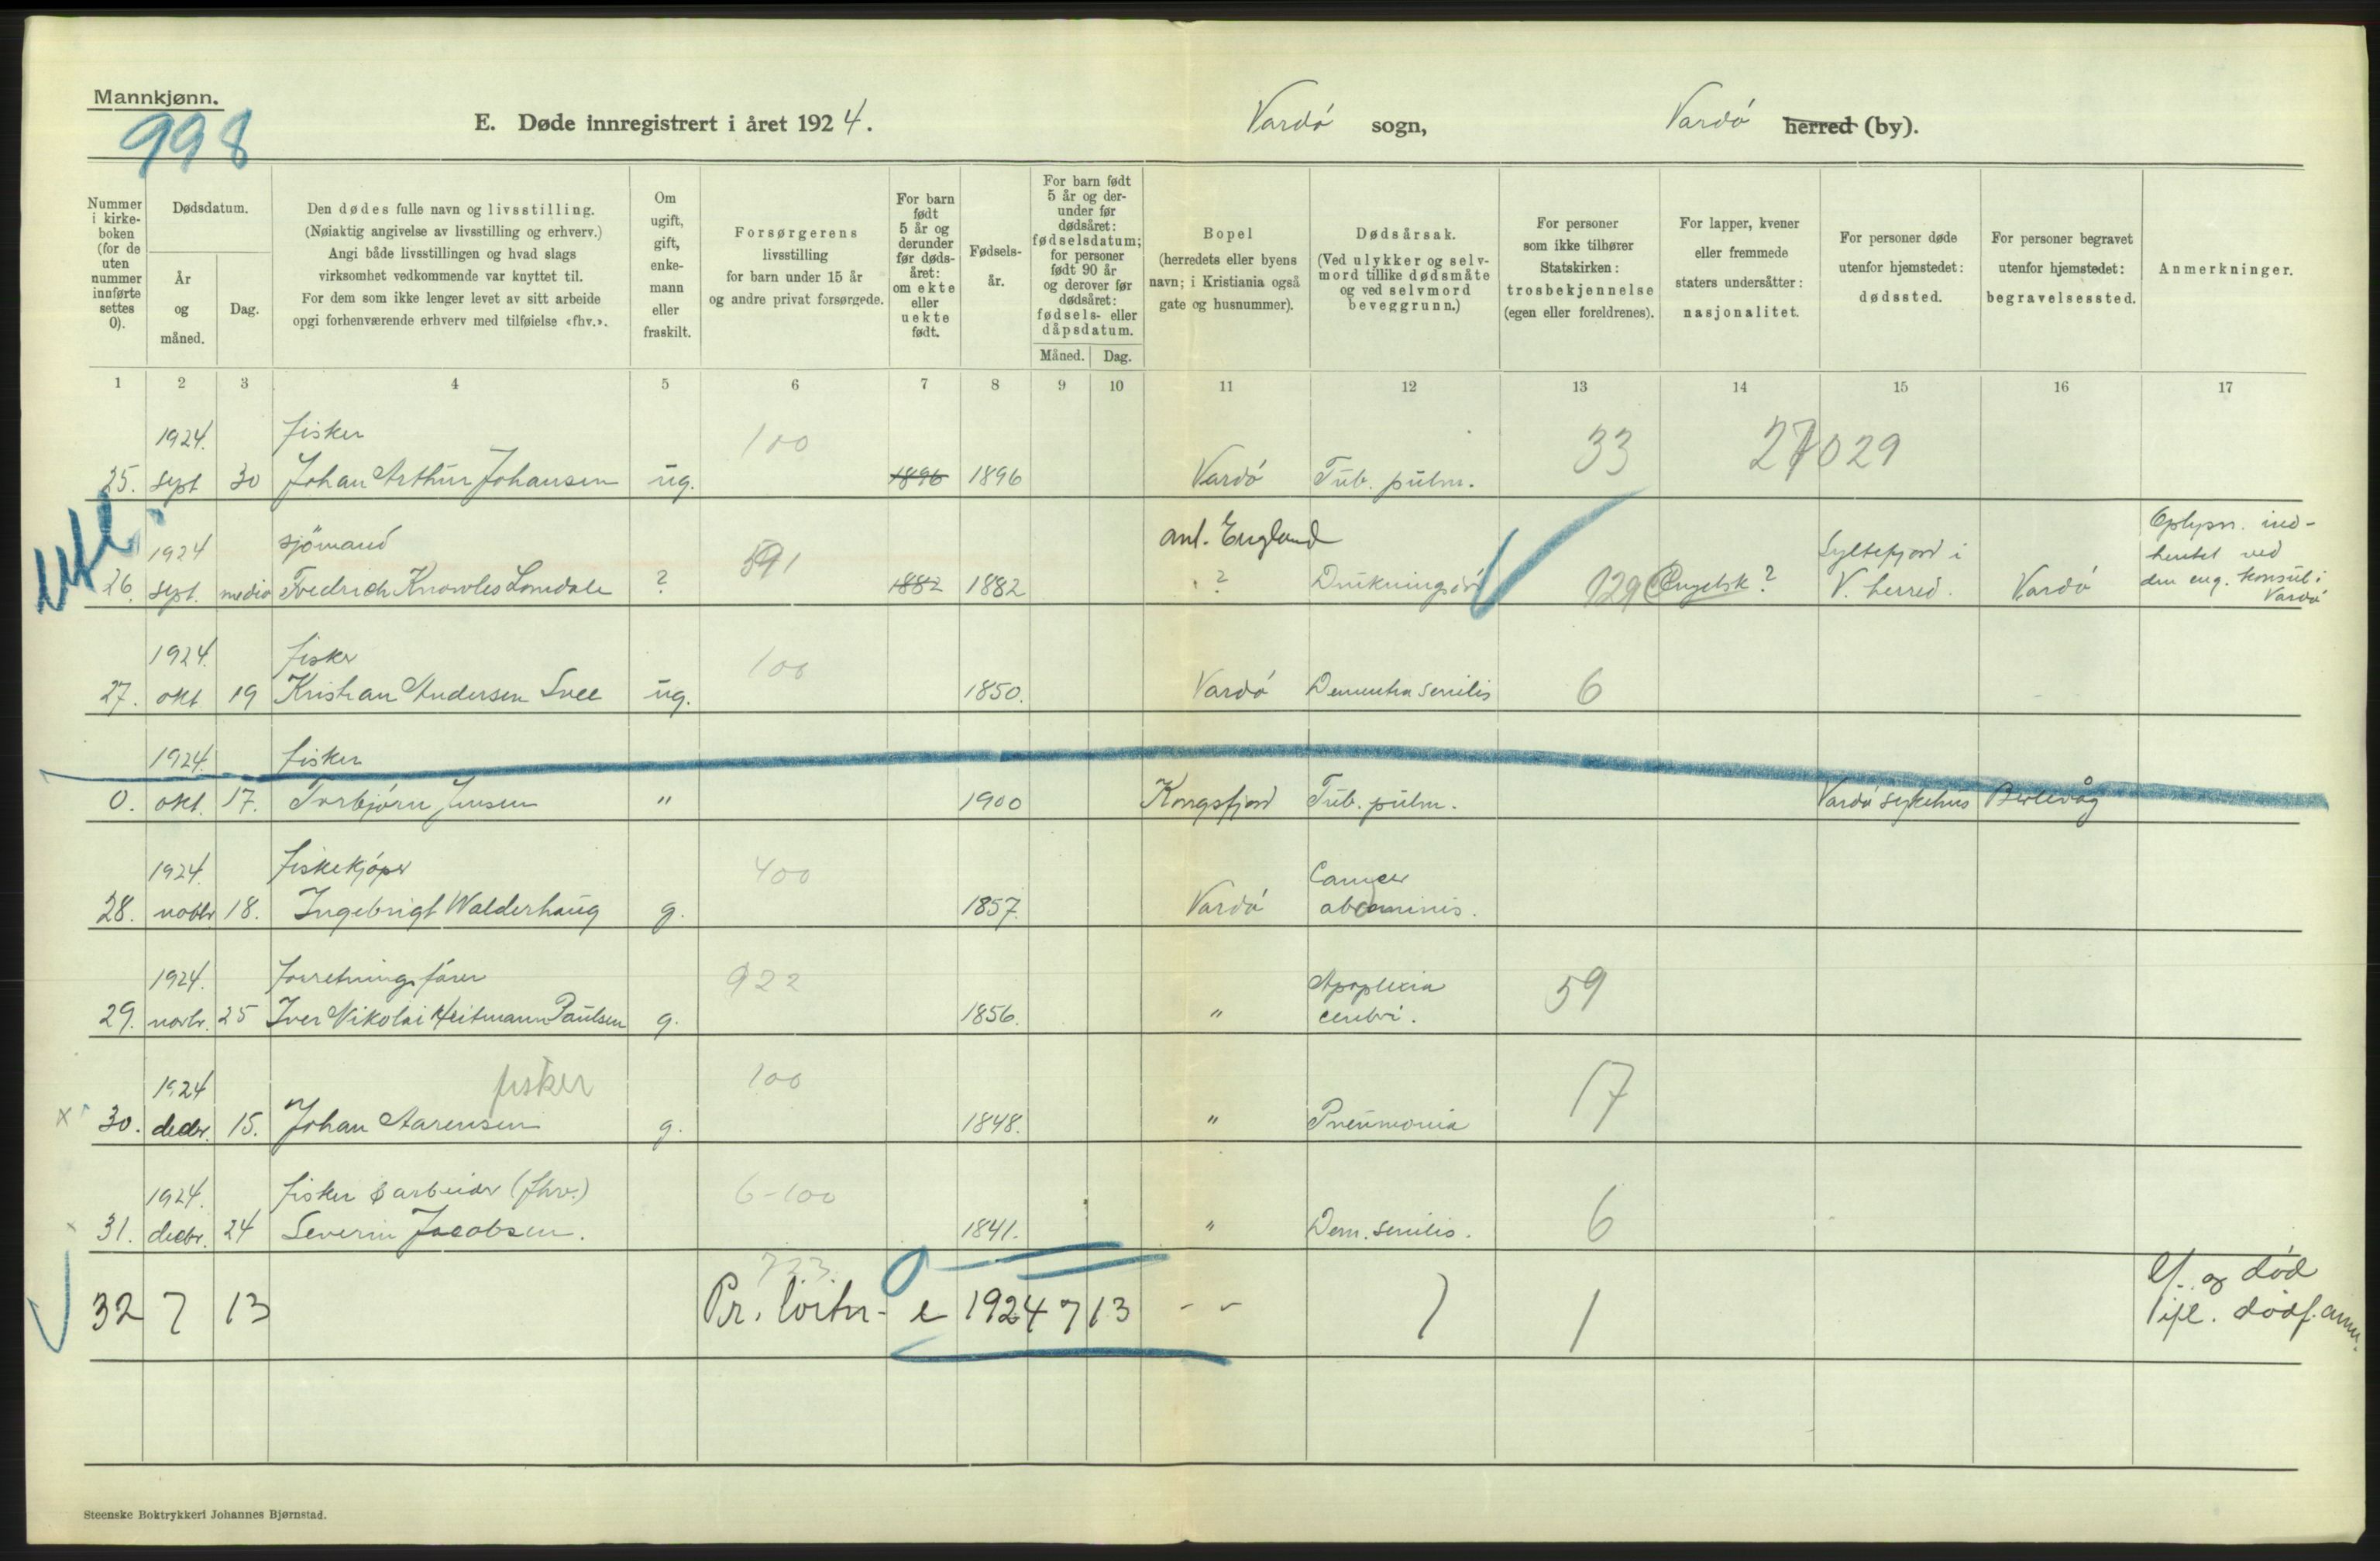 Mannkjønn.
998
E. Døde innregistrert i året 1924.
Vardö sogn,
Vardö herred (by).
Nummer i kirkeboken (for de uten nummer innførte settes 0).
Dødsdatum.
År og måned.
Dag.
Den dødes fulle navn og livsstilling.
(Nøiaktig angivelse av livsstilling og erhverv.)
Angi både livsstillingen og hvad slags
virksomhet vedkommende var knyttet til.
For dem som ikke lenger levet av sitt arbeide
opgi forhenværende erhverv med tilføielse «fhv.».
Om ugift, gift, enkemann eller fraskilt.
Forsørgerens
livsstilling
for barn under 15 år
og andre privat forsørgede.
For barn født 5 år og derunder før dødsåret: om ekte eller uekte født.
Fødselsår.
For barn født 5 år og derunder før dødsåret: fødselsdatum; for personer født 90 år og derover før dødsåret: fødsels- eller dåpsdatum.
Måned. Dag.
Bopel
(herredets eller byens
navn; i Kristiania også
gate og husnummer).
Dødsårsak.
(Ved ulykker og selvmord tillike dødsmåte og ved selvmord beveggrunn.)
For personer
som ikke tilhører
Statskirken:
trosbekjennelse
(egen eller foreldrenes).
For lapper, kvener
eller fremmede
staters undersåtter:
nasjonalitet.
For personer døde
utenfor hjemstedet:
dødssted.
For personer begravet
utenfor hjemstedet:
begravelsessted.
Anmerkninger.
1 2 3 4 5 6 7 8 9 10 11 12 13 14 15 16 17
1924. fisker 100 33 27029
25. sept 30 Johan Arthur Johansen ug. 1896 1896 Vardö Tub. pulm.
1924 sjömand 591 ant. England Syltefjord i Oplysn. indhentet ved
26. sept. medio Fredrich Knowles Lonsdale ? 1882 1882 ? Drukningsdöd 129 Engelsk? V. herred. Vardö den eng. konsul i Vardö
1924. fisker 100
27. okt 19 Kristian Andersen Svee ug. 1850. Vardö Dementia senilis 6
1924. fisker
0. okt. 17. Torbjörn Jensen " 1900 Kongsfjord Tub. pulm. Vardö sykehus Berlevåg
1924. fiskekjöper 400 Cancer
28. novbr 18. Ingebrigt Walderhaug g. 1857. Vardö abdominis.
1924. Forretningsförer 922 Apoplexia 59
29. novbr. 25 Iver Nikolai Heitmann Paulsen g. 1856. " cerebri.
1924 fisker 100 17
x 30. decbr. 15. Johan Aarensen g. 1848. " Pneumonia
1924. fisker & arbeider (fhv.) 6-100
x 31. decbr. 24 Severin Jacobsen. 1841. " Dem. senilis. 6
723
32 7 13 Pr. löitn- e 1924 7 13 - - 1 lf. og död
ifl. dödf. anm.
Steenske Boktrykkeri Johannes Bjørnstad.